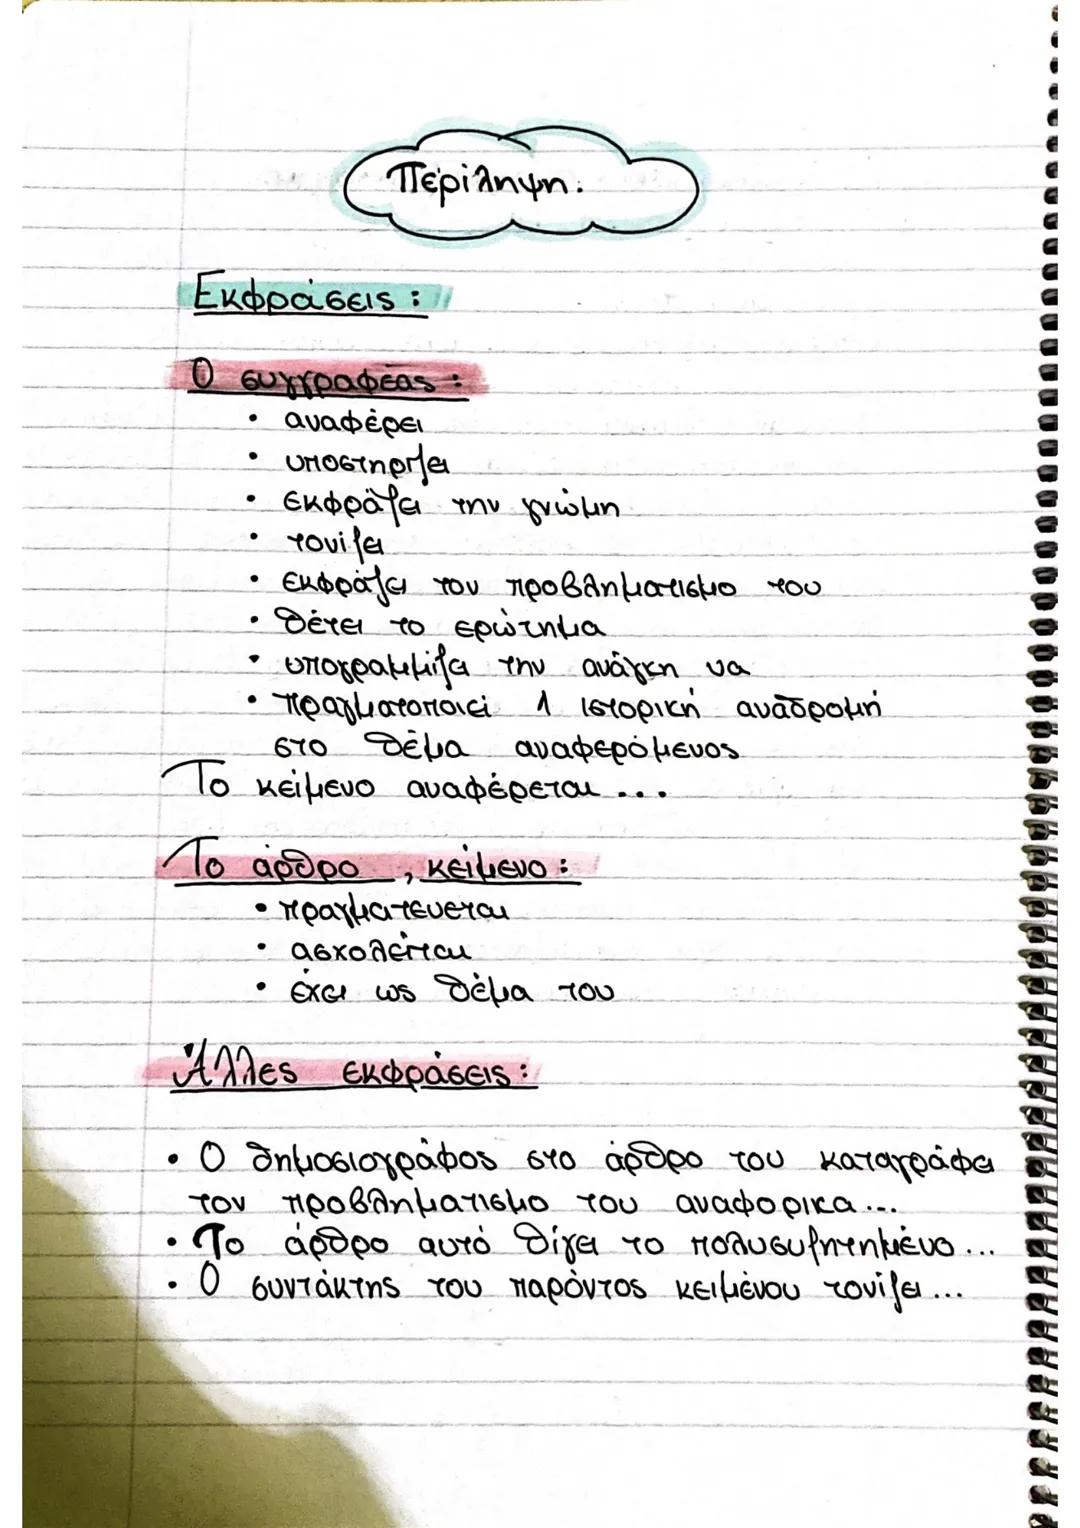 Περίληψη:
Εκφράσεις:
Ο συγγραφέας:
• αναφέρει
• υποστηρίζει
• εκφράζει την γνώμη
• τονίζει
• εκφράζει τον προβληματισμο του
• θέτει το ερώτημα
• υπογραμμίζει την ανάγκη να
• πραγματοποιεί 1 ιστορική αναδρομή
στο θέμα αναφερόμενος
Το κείμενο αναφέρεται...
Το άρθρο, κείμενο:
• πραγματευεται
• ασχολείται
• έχει ως θέμα του
Άλλες εκφράσεις:
• Ο δημοσιογράφος στο άρθρο του καταγράφει
τον προβληματισμο του αναφορικα...
• Το άρθρο αυτό θίγει το πολυσυζητημένο...
• Ο συντάκτης του παρόντος κειμένου τονίζει...